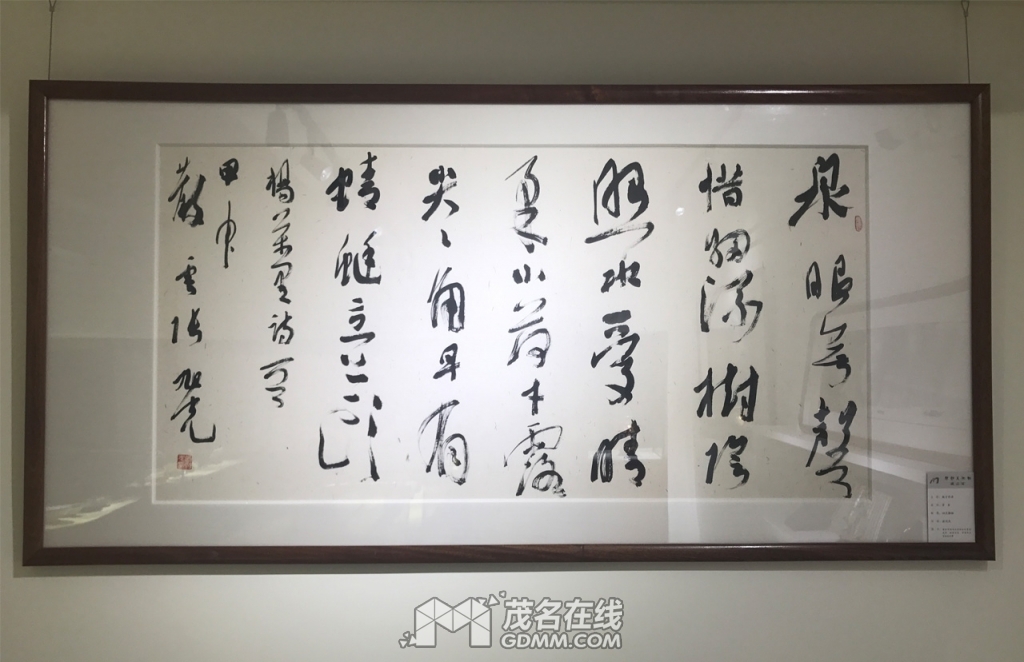 泉眼無聲
惜細流樹陰
照水愛晴
柔小荷才露
尖々角早有
蜻蜓立上頭
楊萬里詩一首
甲申
茂名在线
GDMM.COM